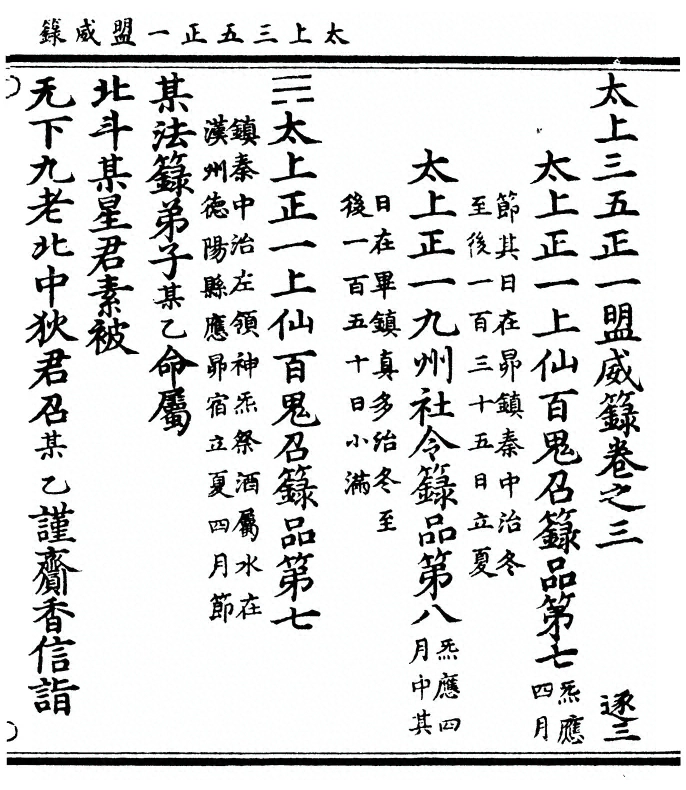 太上三五正一盟威籙
太上三五正一盟威籙卷之三 逐三
太上正一上仙百鬼召籙品第七 炁應
四月
節其日在昴鎮秦中治冬
至後一百三十五日立夏
太上正一九州社令籙品第八 炁應四
月中其
日在畢鎮真多治冬至
後一百五十日小滿
太上正一上仙百鬼召籙品第七
鎮秦中治左領神炁祭酒屬水在
漢州德陽縣應昴宿立夏四月節
某法籙弟子某乙命屬
北斗某星君素被
无下九老北中狄君召某乙謹齎香信詣